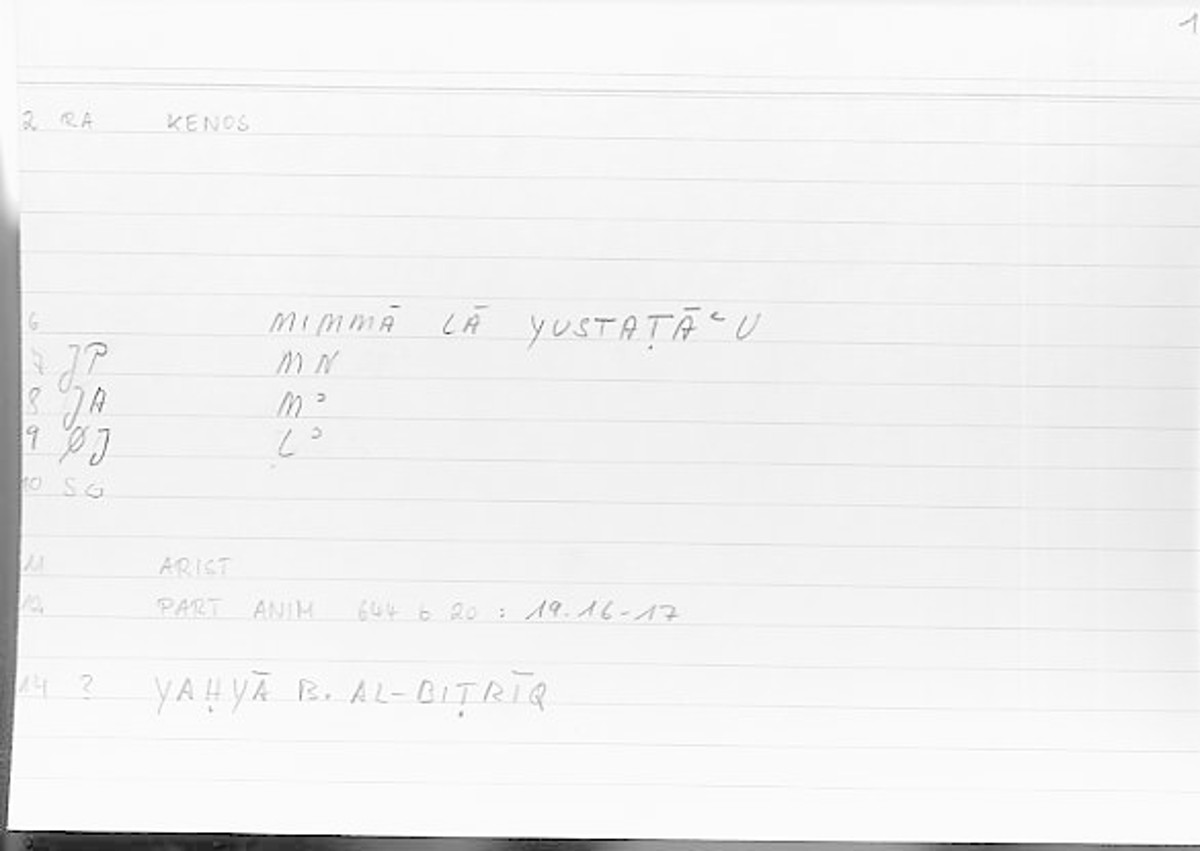 1
2 RA KENOS
6 MIMMĀ LĀ YUSTAṬĀʿU
7 JP MN
8 JA Mʾ
9 ØJ Lʾ
10 SG
11 ARIST
12 PART ANIM 644 b 20 : 19.16-17
14 ? YAḤYĀ B. AL-BIṬRĪQ